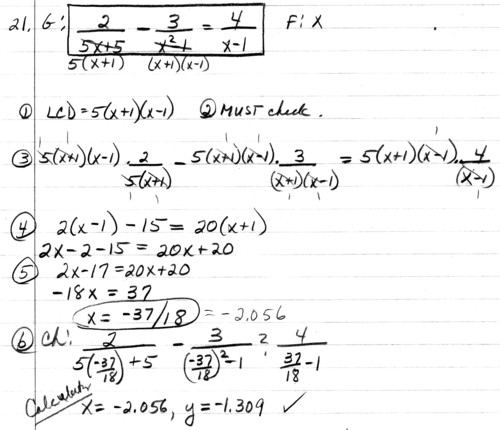 21. G: 2/(5x+5) - 3/(x²-1) = 4/(x-1) F: X
5(x+1) (x+1)(x-1)
① LCD = 5(x+1)(x-1) ② MUST check.
③ 5(x+1)(x-1) · 2/(5(x+1)) - 5(x+1)(x-1) · 3/((x+1)(x-1)) = 5(x+1)(x-1) · 4/(x-1)
④ 2(x-1) - 15 = 20(x+1)
2x-2-15 = 20x+20
⑤ 2x-17 = 20x+20
-18x = 37
x = -37/18 = -2.056
⑥ Ch: 2/(5(-37/18)+5) - 3/((-37/18)²-1) ?= 4/(37/18 - 1)
Calculator x = -2.056, y = -1.309 ✓